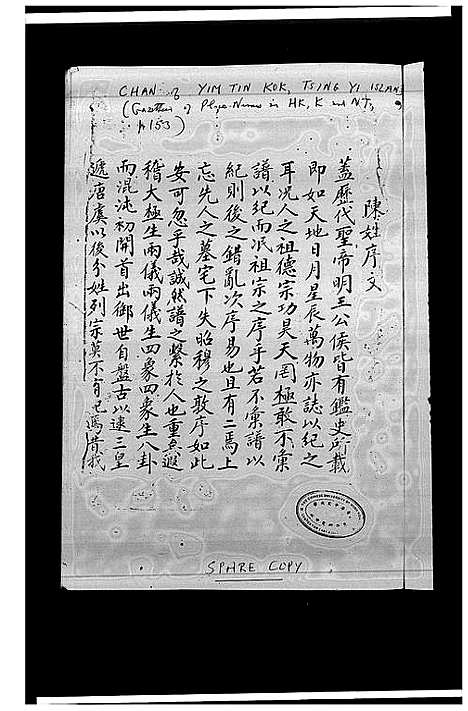 CHAN of YIM TIN KOK, TSING YI ISLAND
(Gazetteer of Place-Names in HK, K and N.T.,
p 153)
陳姓序文
蓋歷代聖帝明王公侯皆有鑑史所載
即如天地日月星辰萬物亦誌以紀之
耳况人之祖德宗功昊天罔極敢不彙
譜以紀而泯祖宗之序乎若不彙譜以
紀則後之錯亂次序易也且有二焉上
忘先人之墓宅下失昭穆之敦序如此
安可忽乎哉誠然譜之繫於人也重矣遐
稽大極生兩儀兩儀生四象四象生八卦
而混沌初開首出御世自盤古以逮三皇
遞唐虞以後分姓列宗莫不有 焉昔我
SPARE COPY